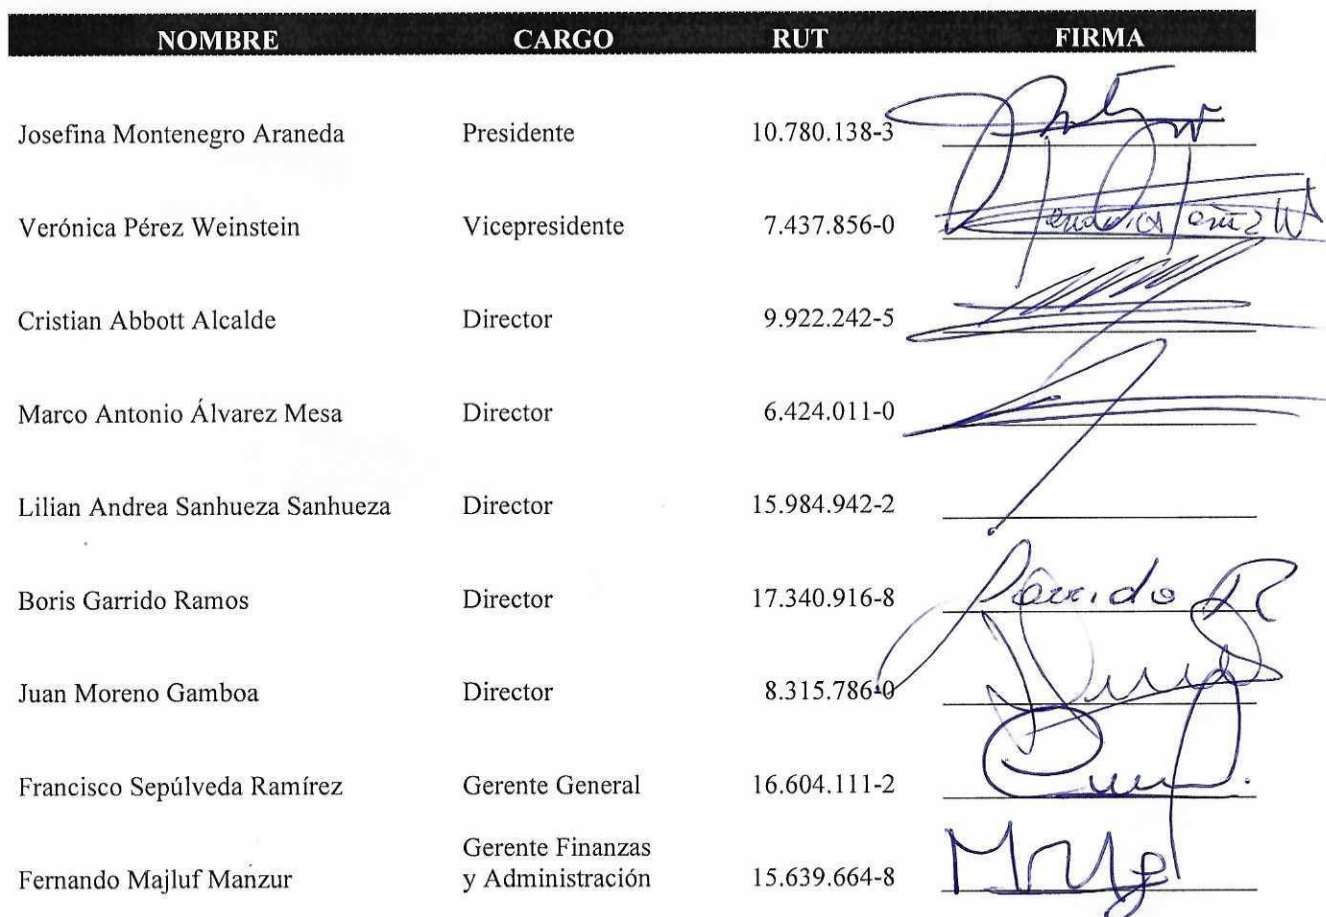 NOMBRE CARGO RUT FIRMA
Josefina Montenegro Araneda Presidente 10.780.138-3
Verónica Pérez Weinstein Vicepresidente 7.437.856-0
Cristian Abbott Alcalde Director 9.922.242-5
Marco Antonio Álvarez Mesa Director 6.424.011-0
Lilian Andrea Sanhueza Sanhueza Director 15.984.942-2
Boris Garrido Ramos Director 17.340.916-8 Garrido R
Juan Moreno Gamboa Director 8.315.786-0
Francisco Sepúlveda Ramírez Gerente General 16.604.111-2
Gerente Finanzas
Fernando Majluf Manzur y Administración 15.639.664-8